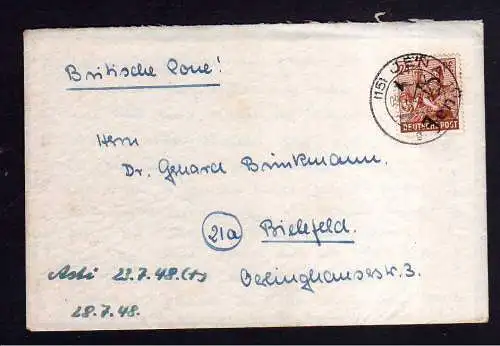 Britische Zone!
(15) JENA
24
DEUTSCHE POST
Herrn
Dr. Gerhard Brinkmann.
21a Bielefeld.
Oelinghauserstr. 3.
23.7.48.
28.7.48.